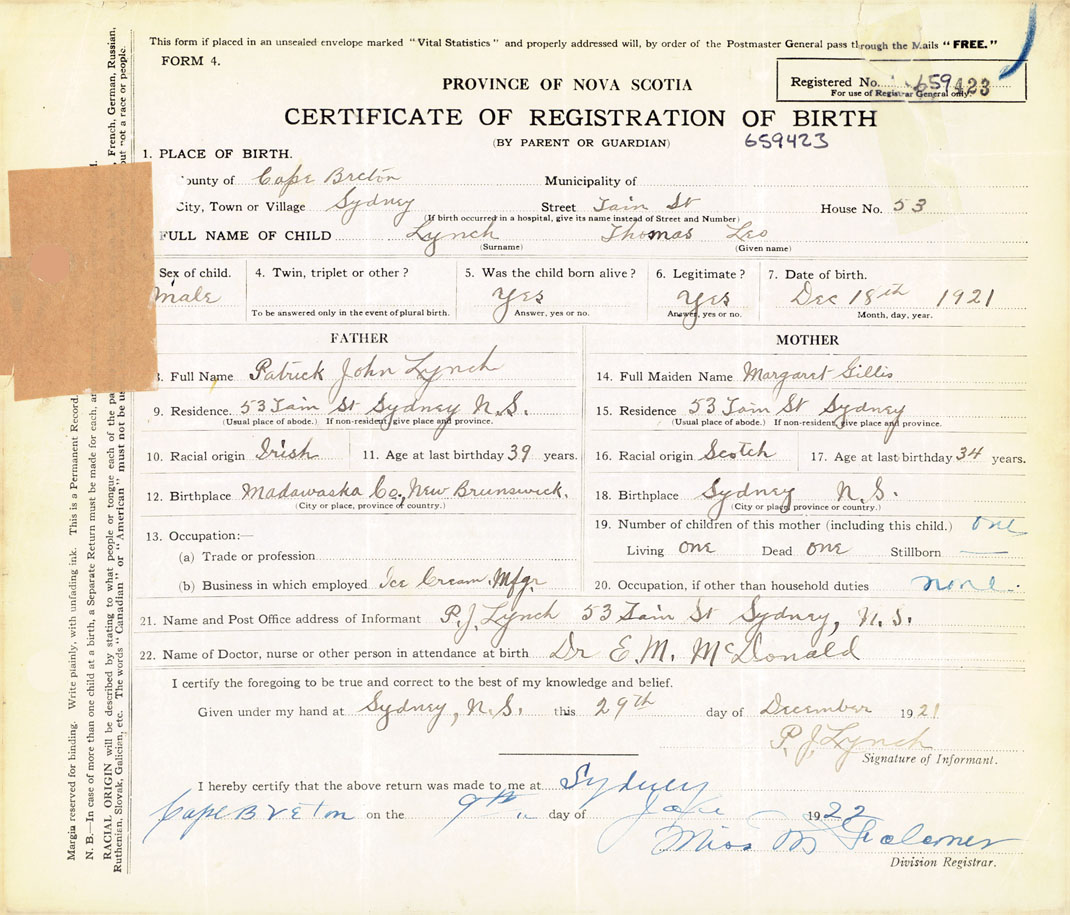 This form if placed in an unsealed envelope marked "Vital Statistics" and properly addressed will, by order of the Postmaster General pass through the Mails "FREE."
FORM 4.
Registered No. 659423
For use of Registrar General only.
PROVINCE OF NOVA SCOTIA
CERTIFICATE OF REGISTRATION OF BIRTH
(BY PARENT OR GUARDIAN) 659423
1. PLACE OF BIRTH.
County of Cape Breton Municipality of
City, Town or Village Sydney Street Tain St House No. 53
(If birth occurred in a hospital, give its name instead of Street and Number)
FULL NAME OF CHILD Lynch Thomas Leo
(Surname) (Given name)
Sex of child. 4. Twin, triplet or other? 5. Was the child born alive? 6. Legitimate? 7. Date of birth.
Male Yes Yes Dec 18th 1921
To be answered only in the event of plural birth. Answer, yes or no. Answer, yes or no. Month, day, year.
FATHER
8. Full Name Patrick John Lynch
9. Residence. 53 Tain St Sydney N.S.
(Usual place of abode.) If non-resident, give place and province.
10. Racial origin Irish 11. Age at last birthday 39 years.
12. Birthplace Madawaska Co., New Brunswick.
(City or place, province or country.)
13. Occupation:—
(a) Trade or profession
(b) Business in which employed Ice Cream Mfgr
MOTHER
14. Full Maiden Name Margaret Gillis
15. Residence 53 Tain St Sydney
(Usual place of abode.) If non-resident, give place and province.
16. Racial origin Scotch 17. Age at last birthday 34 years.
18. Birthplace Sydney N.S.
(City or place, province or country.)
19. Number of children of this mother (including this child.) one
Living one Dead one Stillborn —
20. Occupation, if other than household duties none.
21. Name and Post Office address of Informant P.J. Lynch 53 Tain St Sydney, N.S.
22. Name of Doctor, nurse or other person in attendance at birth Dr E.M. McDonald
I certify the foregoing to be true and correct to the best of my knowledge and belief.
Given under my hand at Sydney, N.S. this 29th day of December 1921
P. J. Lynch
Signature of Informant.
I hereby certify that the above return was made to me at Sydney
Cape Breton on the 9th day of 1922
Miss M
Division Registrar.
Margin reserved for binding. Write plainly, with unfading ink. This is a Permanent Record.
N. B.—In case of more than one child at a birth, a Separate Return must be made for each, a
RACIAL ORIGIN will be described by stating to what people or tongue each of the pa , French, German, Russian,
Ruthenian, Slovak, Galician, etc. The words "Canadian" or "American" must not be u but not a race or people.